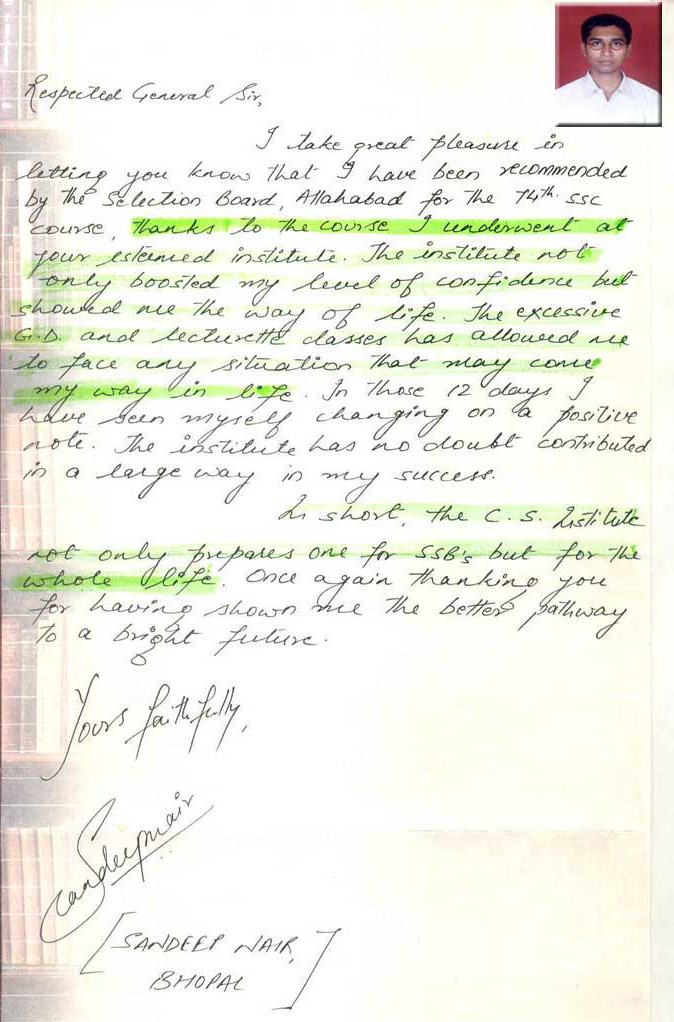 Respected General Sir,
I take great pleasure in
letting you know that I have been recommended
by the Selection Board, Allahabad for the 74th SSC
course, thanks to the course I underwent at
your esteemed institute. The institute not
only boosted my level of confidence but
showed me the way of life. The excessive
G.D. and lecturette classes has allowed me
to face any situation that may come
my way in life. In those 12 days I
have seen myself changing on a positive
note. The institute has no doubt contributed
in a large way in my success.
In short, the C.S. Institute
not only prepares one for SSB's but for the
whole life. Once again thanking you
for having shown me the better pathway
to a bright future.
Yours faithfully,
Sandeepnair
[SANDEEP NAIR,
BHOPAL]